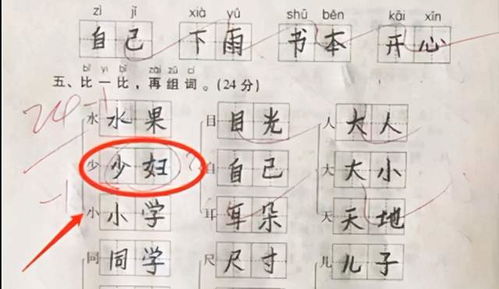 zì jǐ xià yǔ shū běn kāi xīn
自己 下雨 书本 开心
bǐ yi bǐ zài zǔ cí
五、比一比，再组词。(24分)
24-1
水 水果 日 目光 人 大人
少 少妇 自 自己 大 大小
-1
小 小学 耳 耳朵 天 天地
同 同学 尺 尺寸 儿 儿子